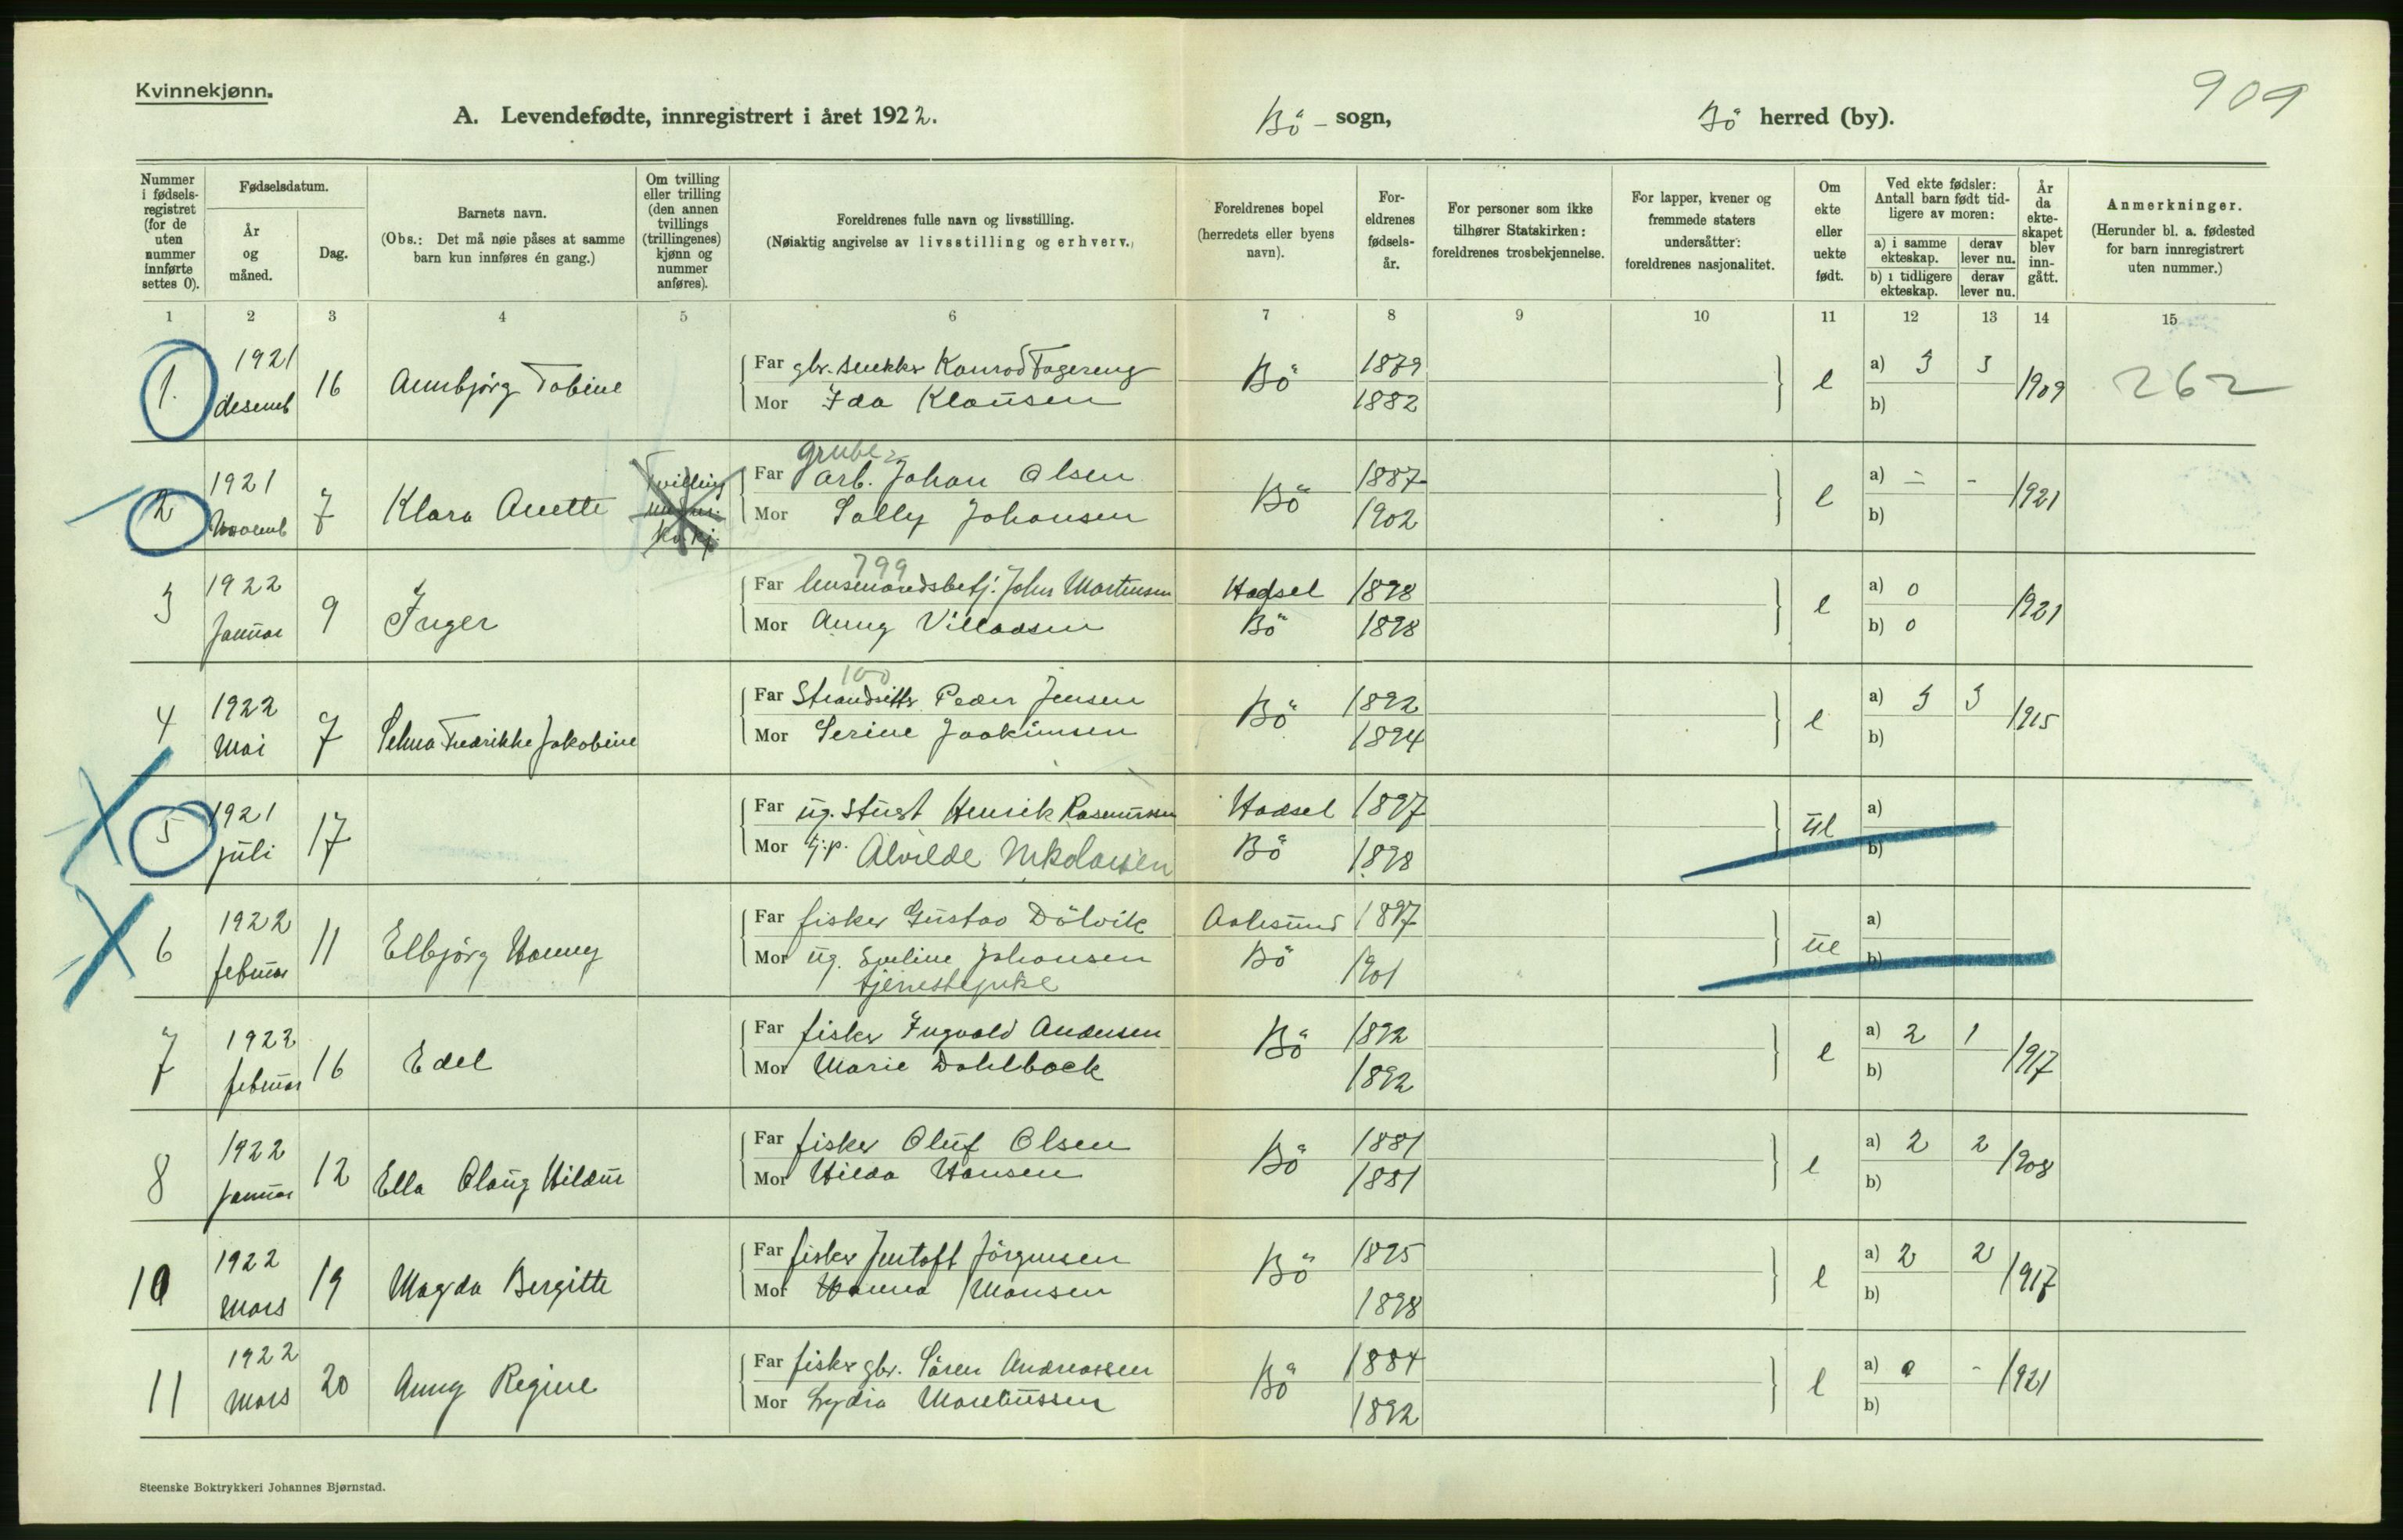 Kvinnekjønn.
909
A. Levendefødte, innregistrert i året 1922.
Bö - sogn,
Bö herred (by).
Nummer i fødsels-registret (for de uten nummer innførte settes 0).
Fødselsdatum.
År og måned.
Dag.
Barnets navn.
(Obs.: Det må nøie påses at samme barn kun innføres én gang.)
Om tvilling eller trilling (den annen tvillings (trillingenes) kjønn og nummer anføres).
Foreldrenes fulle navn og livsstilling.
(Nøiaktig angivelse av livsstilling og erhverv.)
Foreldrenes bopel (herredets eller byens navn).
For-eldrenes fødsels-år.
For personer som ikke tilhører Statskirken: foreldrenes trosbekjennelse.
For lapper, kvener og fremmede staters undersåtter: foreldrenes nasjonalitet.
Om ekte eller uekte født.
Ved ekte fødsler: Antall barn født tid-ligere av moren:
a) i samme ekteskap.
derav lever nu.
b) i tidligere ekteskap.
derav lever nu.
År da ekte-skapet blev inn-gått.
Anmerkninger.
(Herunder bl. a. fødested for barn innregistrert uten nummer.)
1 2 3 4 5 6 7 8 9 10 11 12 13 14 15
1. 1921 desemb 16 Annbjörg Tobine
Far gbr. snekker Konrad Fagereng Bö 1879 e a) 3 3 1909 262
Mor Ida Klausen 1882 b)
2 1921 Novemb 7 Klara Anette Tvilling
Far grube arb. Johan Olsen Bö 1887 e a) - - 1921
Mor Sally Johansen 1902 b)
799
3 1922 Januar 9 Inger
Far John Martinsen Hadsel 1898 e a) 0 1921
Mor Anny Villadsen Bö 1898 b) 0
100
4 1922 Mai 7 Selma Fredrikke Jakobine
Far Strandsitter Peder Jensen Bö 1892 e a) 3 3 1915
Mor Serine Joakimsen 1894 b)
5 1921 juli 17
Far ug. Henrik Rasmussen Hadsel 1897 ue a)
Mor Alvilde Nikolaisen Bö 1898 b)
6 1922 februar 11 Elbjörg Hanny
Far fisker Gustav Dölvik Aalesund 1897 ue a)
Mor ug. Eveline Johansen Bö 1901 b)
tjenestepike
7 1922 februar 16 Edel
Far fisker Ingvald Andersen Bö 1892 e a) 2 1 1917
Mor Marie Dahlback 1892 b)
8 1922 Januar 12 Ella Olaug Hildur
Far fisker Oluf Olsen Bö 1881 e a) 2 2 1908
Mor Hilda Hansen 1881 b)
10 1922 Mars 19 Magda Bergitte
Far fisker Jentoft Jörgensen Bö 1895 e a) 2 2 1917
Mor Hanna Monsen 1898 b)
11 1922 Mars 20 Anny Regine
Far fisker gbr. Sören Andreassen Bö 1884 e a) 0 - 1921
Mor Lydia 1892 b)
Steenske Boktrykkeri Johannes Bjørnstad.